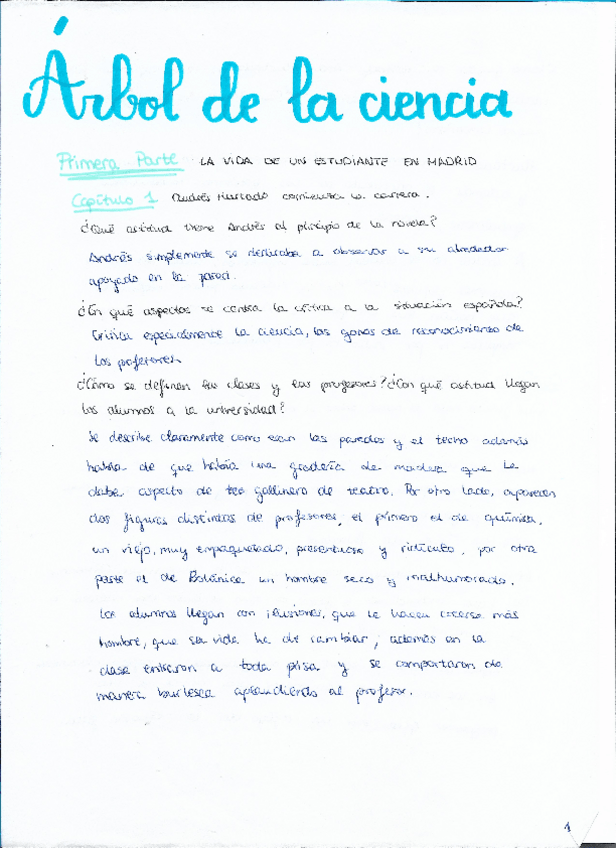 Árbol de la ciencia
Primera Parte LA VIDA DE UN ESTUDIANTE EN MADRID
Capítulo 1 Andrés Hurtado comienza la carrera.
¿Qué actitud tiene Andrés al principio de la novela?
Andrés simplemente se dedicaba a observar a su alrededor
apoyado en la pared.
¿En qué aspectos se centra la crítica a la situación española?
Critica especialmente la ciencia, las ganas de reconocimiento de
los profesores
¿Cómo se definen las clases y los profesores? ¿Con qué actitud llegan
los alumnos a la universidad?
Se describe claramente como eran las paredes y el techo además
habla de que había una gradería de madera que le
daba aspecto de gallinero de teatro. Por otro lado, aparecen
dos figuras distintas de profesores, el primero el de química,
un viejo, muy empaquetado, presentuoso y ridículo, por otra
parte el de Botánica un hombre seco y malhumorado.
Los alumnos llegan con ilusiones, que le hacen más
hombre, que su vida ha de cambiar, además en la
clase entraron a toda prisa y se comportaron de
manera burlesca aplaudiendo al profesor.
1